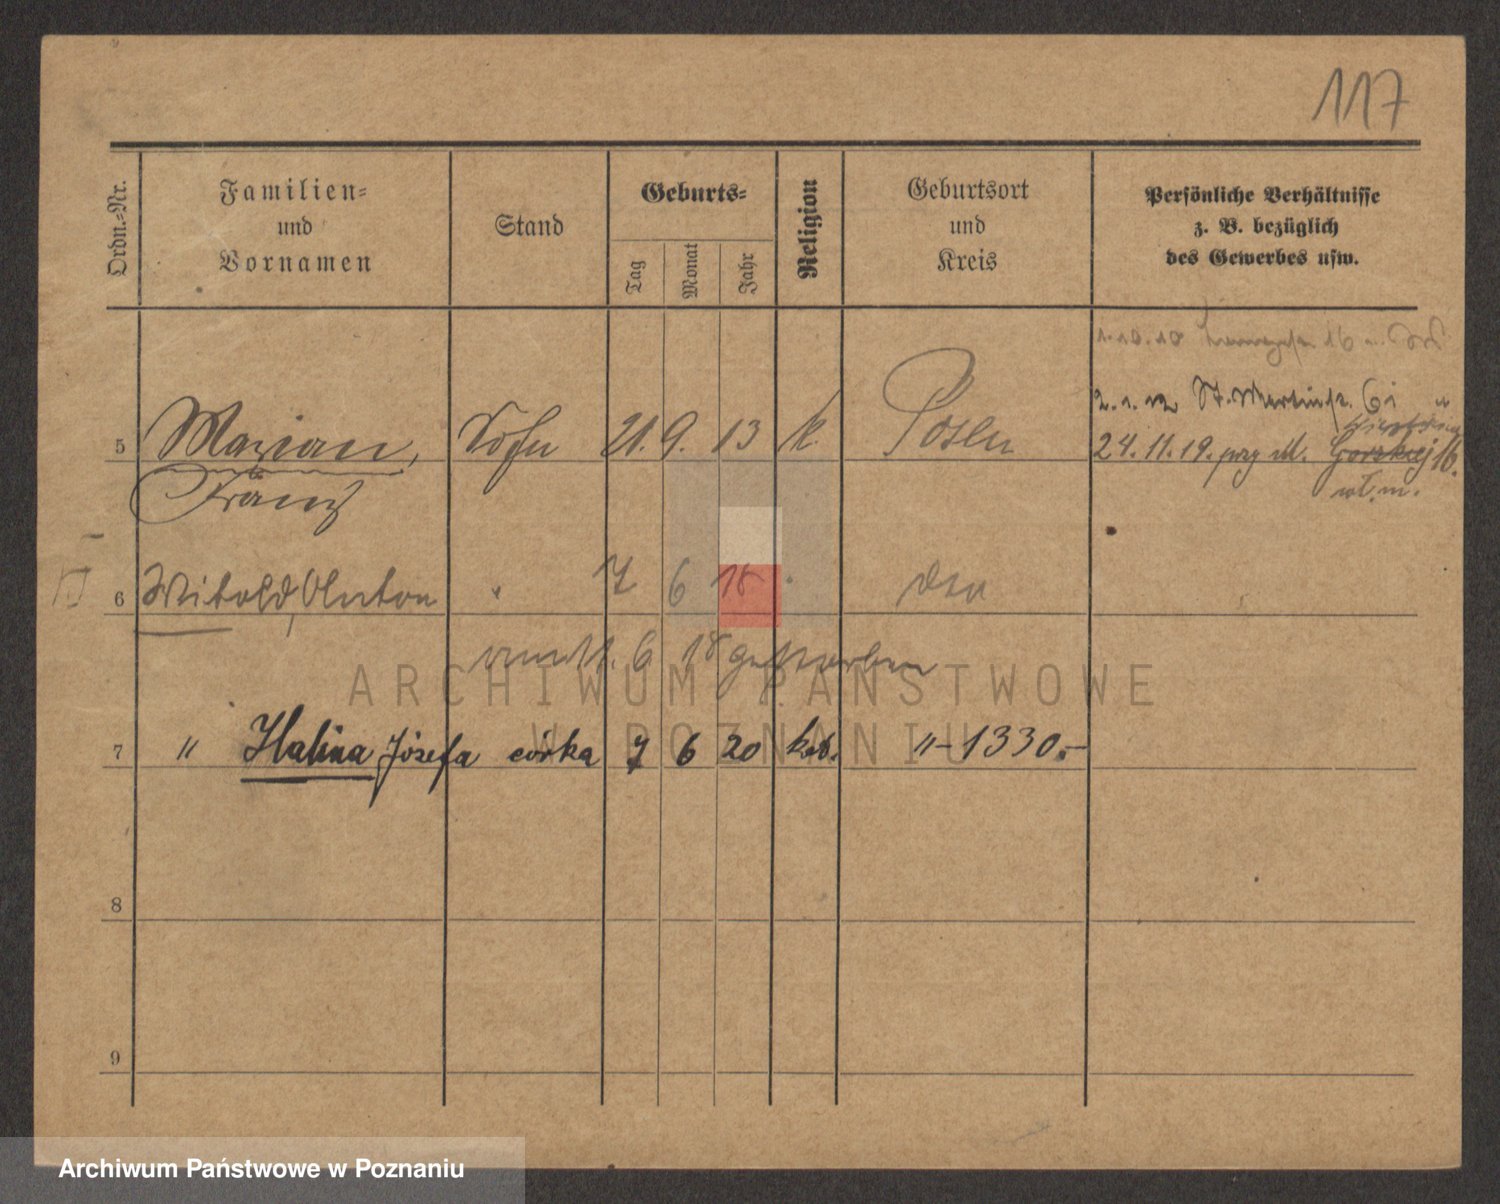 117
Ordn.-Nr.
Familien-
und
Vornamen
Stand
Geburts-
Tag
Monat
Jahr
Religion
Geburtsort
und
Kreis
Persönliche Verhältnisse
z. B. bezüglich
des Gewerbes usw.
1.10.10 16
2.1.12 St. Martinstr. 6
5 Marian, Sohn 21. 9. 13 k. Posen
24.11.19. przy ul. Gorskiej 16.
Franz
6 Witold, Anton " 7 6 18 " dto
6 18 gestorben
7 " Halina Józefa córka 7 6 20 kat. " -1330.-
8
9
ARCHIWUM PAŃSTWOWE
W POZNANIU
Archiwum Państwowe w Poznaniu